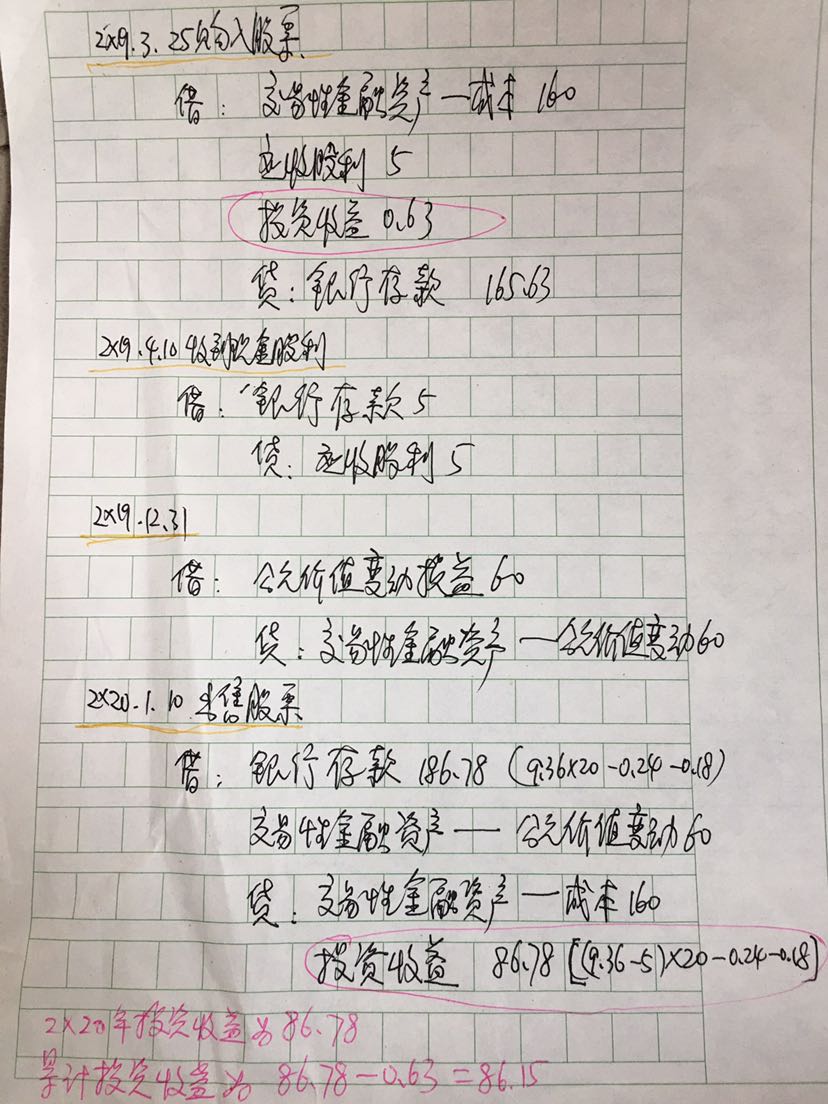 2×19.3.25购入股票
借：交易性金融资产—成本 160
应收股利 5
投资收益 0.63
贷：银行存款 165.63
2×19.4.10 收到现金股利
借：银行存款 5
贷：应收股利 5
2×19.12.31
借：公允价值变动损益 60
贷：交易性金融资产—公允价值变动 60
2×20.1.10 出售股票
借：银行存款 186.78 (9.36×20-0.24-0.18)
交易性金融资产—公允价值变动 60
贷：交易性金融资产—成本 160
投资收益 86.78 [(9.36-5)×20-0.24-0.18]
2×20年投资收益为86.78
累计投资收益为 86.78-0.63=86.15